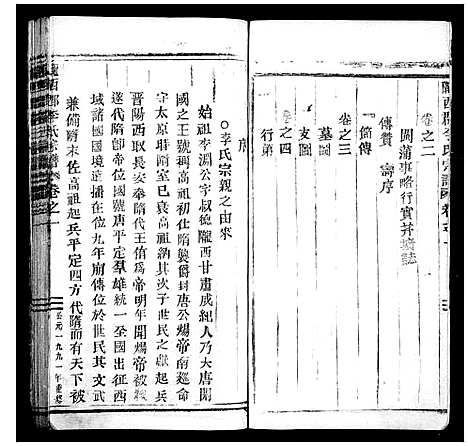 隴西郡李氏宗譜 卷之一
卷之二
閫蒲事略行實并壙誌
傳贊 壽序
一 節傳
卷之三
墓圖
支圖
卷之四
行第
序
○李氏宗親之由來
始祖李淵公字叔德隴西甘肅成紀人乃大唐開
國之王號稱高祖初仕隋襲爵封唐公煬帝南廵命
主守莊 隋室已衰時其次子世民之獻起兵
晋陽西取長安奉隋代王侑爲帝明年開煬帝被殺
遂代隋卽帝位國號唐平定羣雄統一全國出征西
域諸國國境遠播在位九年廟傳位於世民其文武
兼備隋末佐高祖起兵平定四方 代隋而有天下被
隴西郡李氏宗譜 卷之一
公元一九九一年重修